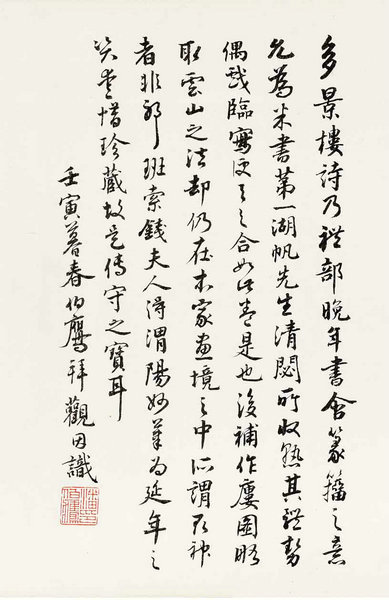 多景樓詩乃禮部晚年書含篆籀之意
允為米書第一湖帆先生清閟所收熟其體勢
偶戲臨寫便與之合如此卷是也後補作廔圖略
取雲山之法却仍在本家畫境之中所謂取神
者非耶班索錢夫人得渭陽妙筆為延年之
愛惜珍藏故是傳守之寶耳
壬寅暮春伯鷹拜觀因識